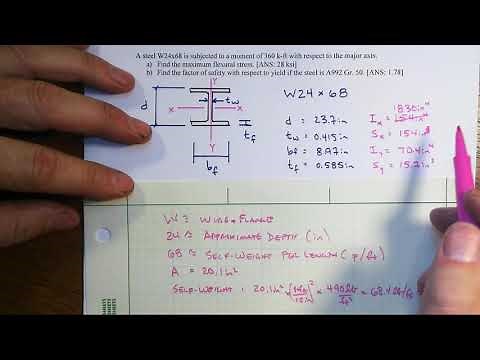 A steel W24x68 is subjected to a moment of 360 k-ft with respect to the major axis.
a) Find the maximum flexural stress. [ANS: 28 ksi]
b) Find the factor of safety with respect to yield if the steel is A992 Gr. 50. [ANS: 1.78]
W24 × 68
1830in⁴
d = 23.7in
Ix = 154in⁴
tw = 0.415in
Sx = 154in³
bf = 8.97in
Iy = 70.4in⁴
tf = 0.585in
Sy = 15.7in³
d
Y
x
x
tw
Y
tf
bf
W ≅ WIDE FLANGE
24 ≅ APPROXIMATE DEPTH (in)
68 ≅ SELF-WEIGHT PER LENGTH (#/ft)
A = 20.1in²
SELF-WEIGHT = 20.1in² × (1ft/12in)² × 490lb/ft³ = 68.4 lb/ft